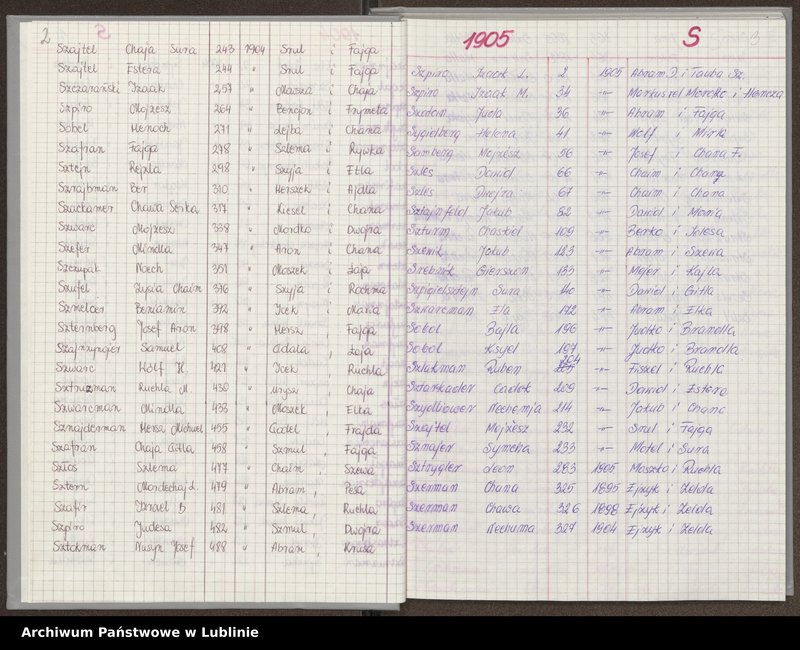 2
Szajtel Chaja Sura 243 1904 Srul i Fajga
Szajtel Estera 244 " Srul i Fajga
Szczarański Izaak 257 " Moszka i Chaja
Szpiro Mojżesz 264 " Bencjon i Frymeta
Sobel Henoch 271 " Lejba i Chana
Szafran Fajga 278 " Szlema i Rywka
Sztejn Rejzla 298 " Szyja i Etla
Szrajbman Ber 310 " Herszek i Ajdla
Chawa Serka 317 " Kiesel i Chana
Szwarc Mojżesz 338 " Mordko i Dwojra
Szefer Mindla 347 " Aron i Chana
Szczupak Noech 351 " Moszek i Łaja
Szufel Zysia Chaim 376 " Szyja i Rochma
Szmelcer Beniamin 392 " Icek i Maria
Szternberg Josef Aron 398 " Hersz i Fajga
Samuel 408 " Łaja
Szwarc Wolf H. 421 " Icek Ruchla
Ruchla M. 430 " Chaja
Szwarcman Mindla 433 " Moszek Etka
Sznajderman Hersz Michuel 455 " Gadel Frajda
Szafran Chaja Gitla 458 " Szmul Fajga
Szlos Szlema 477 " Chaim Szewa
Sztern Mordechaj d. 479 " Abram Pesa
Szafir Izrael B 481 " Szlema Ruchla
Szpiro Judesa 482 " Szmul Dwojra
Sztokman Nusyn Josef 488 " Abram Krusa
1905 S 3
Szpiro Izaak L. 2 1905 Abram J. i Tauba Sz.
Szpiro Izaak M. 34 -"- Morduszel Moszko i Hencza
Juda 36 -"- Abram i Fajga
Sygielberg Helena 41 -"- Wolf i Mirla
Samberg Mojżesz 56 -"- Josef i Chana F.
Szles Dawid 66 -"- Chaim i Chana
Szles Dwojra 67 -"- Chaim i Chana
Sztajnfeld Jakub 82 -"- Dawid i Maria
Szturm Chaskiel 109 -"- Berko i
Jakub 123 -"- Abram i
Srebrnik Gierszon 135 -"- Majer i Kajla
Szpigielsztejn Sura 140 -"- Dawid i Gitla
Szwarcman Ela 172 -"- Abram i Etka
Sobol Bajla 196 -"- Judko i Brandla
Sobol Ksyel 197 -"- Judko i Brandla
Szlakman Ruben 204 -"- Fiszel i Ruchla
Sztarkader Cadok 209 -"- Dawid i Estera
Szydłower Nechemja 214 -"- Jakub i Chana
Szajtel Mojżesz 232 -"- Srul i Fajga
Sznajer Symcha 233 -"- Motel i Sura
Sztrygler Leon 283 1905 Moszko i Ruchla
Szerman Chana 325 1895 Ejzyk i Zelda
Szerman Chawa 326 1898 Ejzyk i Zelda
Szerman Nechuma 327 1904 Ejzyk i Zelda
Archiwum Państwowe w Lublinie